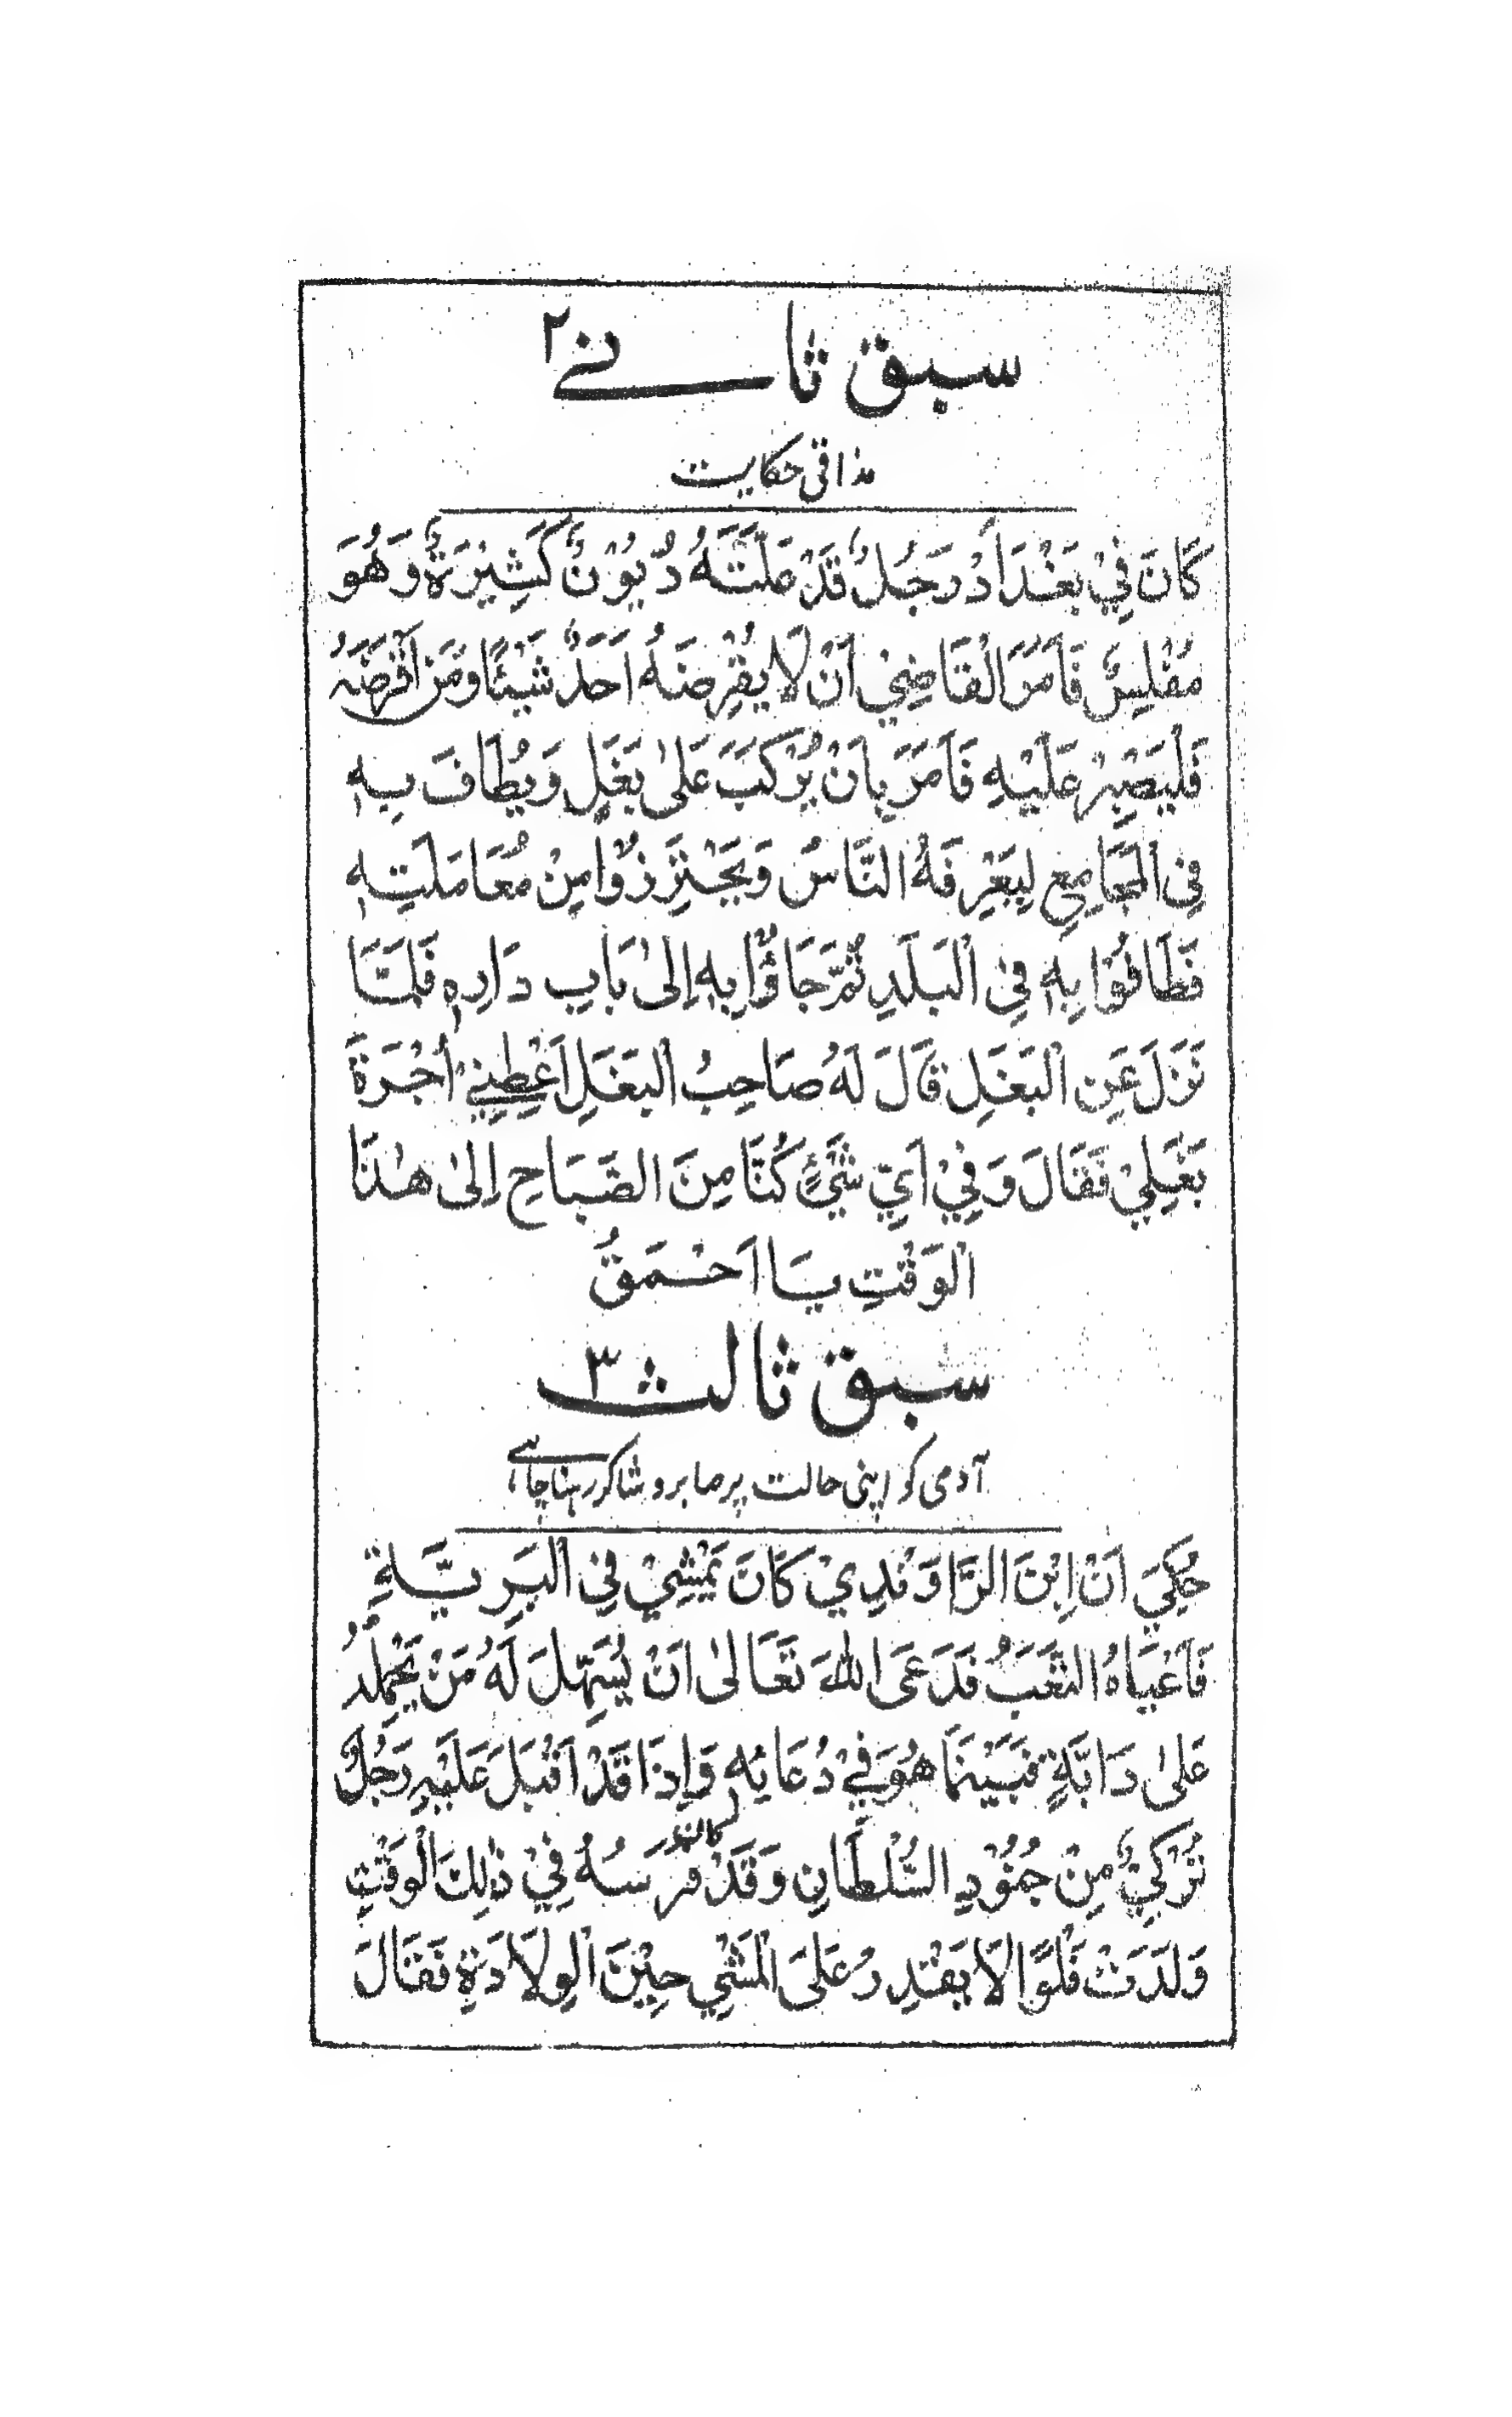 سبق ثانے ۲
مذاقی حکایت
كَانَ فِيْ بَغْدَادَ رَجُلٌ قَدْ مَلَّتَهُ دُيُوْنٌ كَثِيْرَةٌ وَهُوَ
مُفْلِسٌ فَاَمَرَ الْقَاضِيْ اَنْ لَا يُقْرِضَهُ اَحَدٌ شَيْئًا وَمَنْ اَقْرَضَهُ
فَلْيَصْبِرْ عَلَيْهِ فَاَمَرَ بِاَنْ يُرْكَبَ عَلىٰ بَغْلٍ وَيُطَافَ بِهٖ
فِي الْمَجَامِعِ لِيَعْرِفَهُ النَّاسُ وَيَحْتَرِزُوْا مِنْ مُعَامَلَتِهٖ
فَطَافُوْا بِهٖ فِي الْبَلَدِ ثُمَّ جَاؤُوْا بِهٖ اِلىٰ بَابِ دَارِهٖ فَلَمَّا
نَزَلَ عَنِ الْبَغَلِ قَالَ لَهُ صَاحِبُ الْبَغَلِ اَعْطِنِيْ اُجْرَةَ
بَغْلِيْ فَقَالَ وَفِيْ اَيِّ شَيْءٍ كُنَّا مِنَ الصَّبَاحِ اِلىٰ هٰذَا
الْوَقْتِ يَا اَحْمَقُ
سبق ثالث ۳
آدمی کو اپنی حالت پر صابر و شاکر رہنا چاہئے
حُكِيَ اَنْ اِبْنَ الرَّاوَنْدِيْ كَانَ يَمْشِيْ فِي الْبَرِيَّةِ
فَاَعْيَاهُ التَّعَبُ فَدَعَى اللهَ تَعَالىٰ اَنْ يُسَهِّلَ لَهُ مَنْ يَحْمِلُهُ
عَلىٰ دَابَّةٍ فَبَيْنَمَا هُوَ فِيْ دُعَائِهٖ وَاِذَا قَدْ اَقْبَلَ عَلَيْهِ رَجُلٌ
تُرْكِيٌّ مِنْ جُنُوْدِ السُّلْطَانِ وَقَدْ كانت فَرَسُهُ فِيْ ذٰلِكَ الْوَقْتِ
وَلَدَتْ فَلْوًا لَا يَقْدِرُ عَلَى الْمَشْيِ حِيْنَ الْوِلَادَةِ فَقَالَ